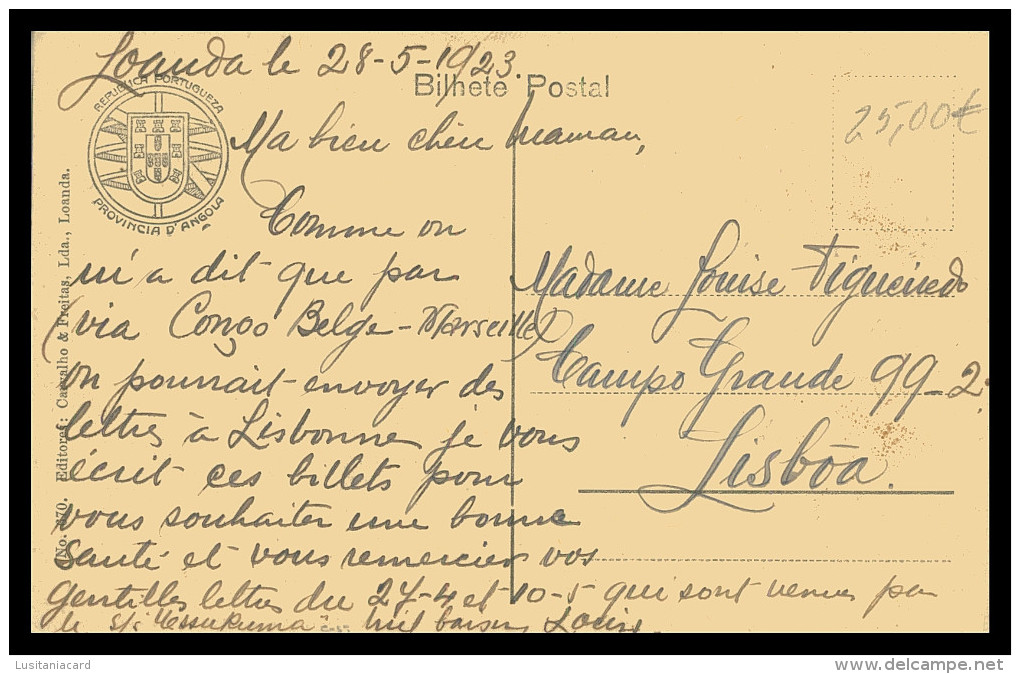 Loanda le 28-5-1923.
Bilhete Postal
REPUBLICA PORTUGUEZA
PROVINCIA D'ANGOLA
25,00€
Ma bien chère maman,
Comme on
m'a dit que par
(via Congo Belge-Marseille)
on pourrait envoyer des
lettres à Lisbonne je vous
écrit ces billets pour
vous souhaiter une bonne
santé et vous remercier vos
gentilles lettres du 24-4 et 10-5 qui sont venues par
le s/s mil baisers Louis
Madame Louise Figueiredo
Campo Grande 99-2º
Lisbôa.
(No. 370. Editores: Carvalho & Freitas, Lda., Loanda.
Lusitaniacard
www.delcampe.net